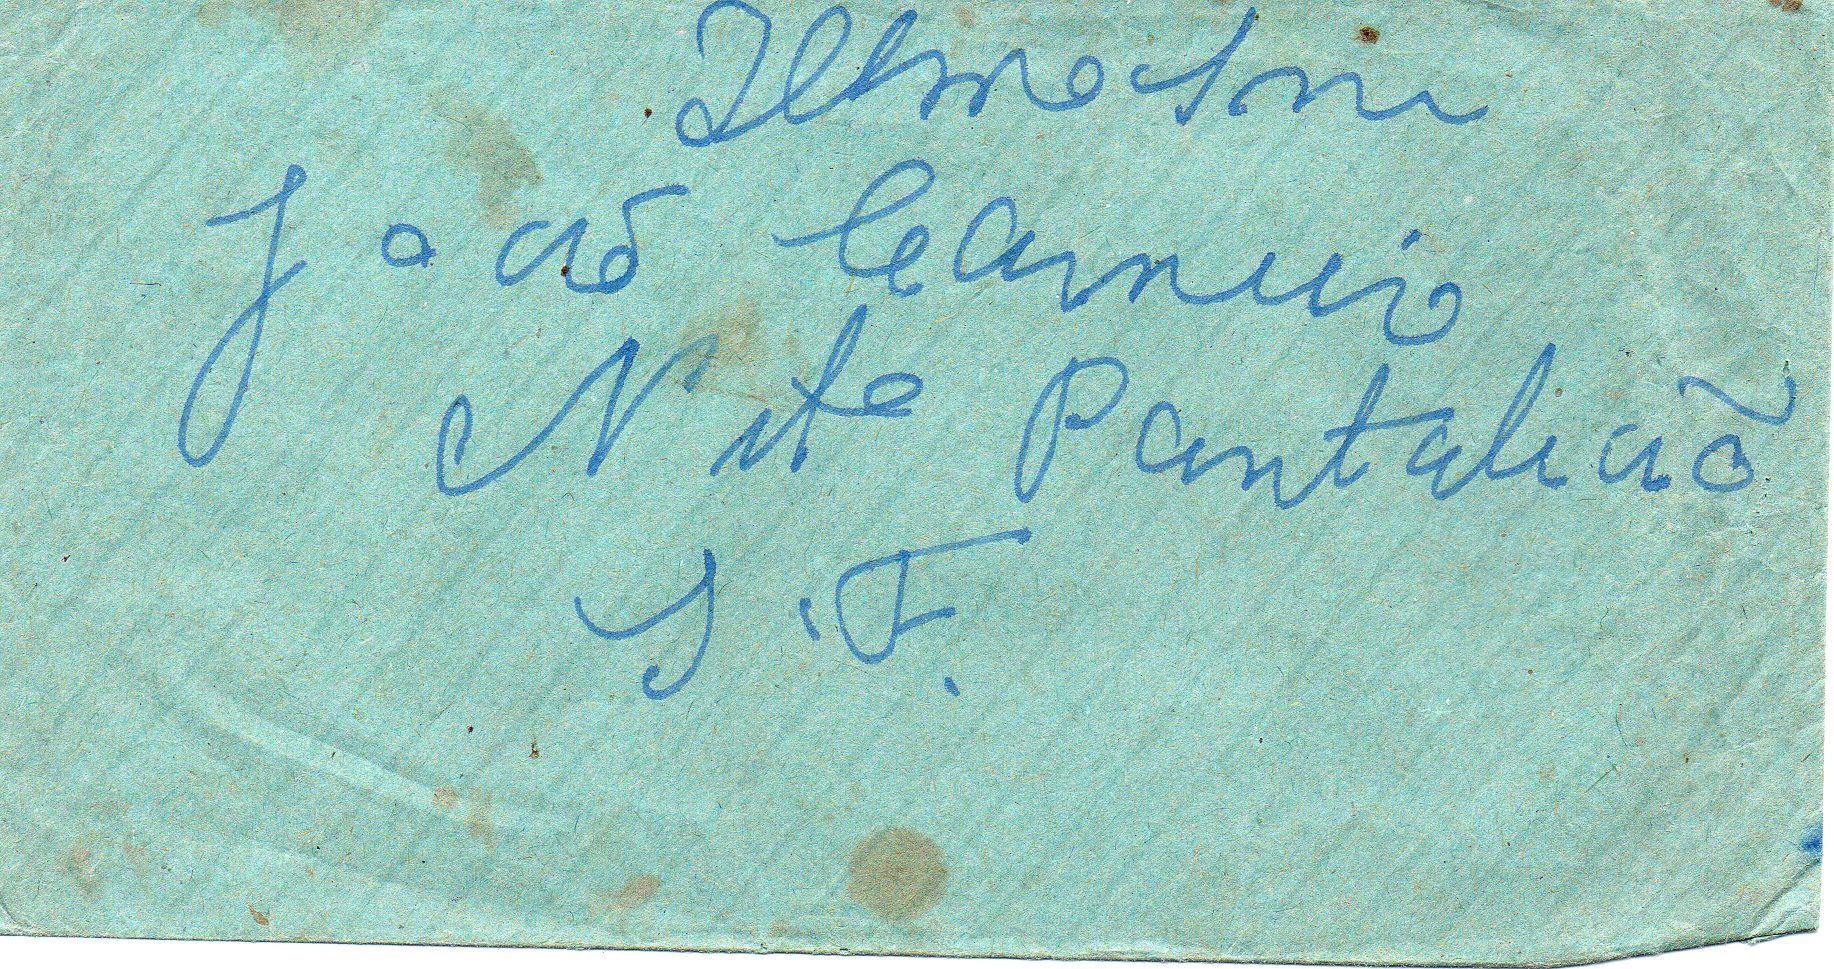 Ilmo Snr
João Carneiro
Nite Pantalião
S. F.